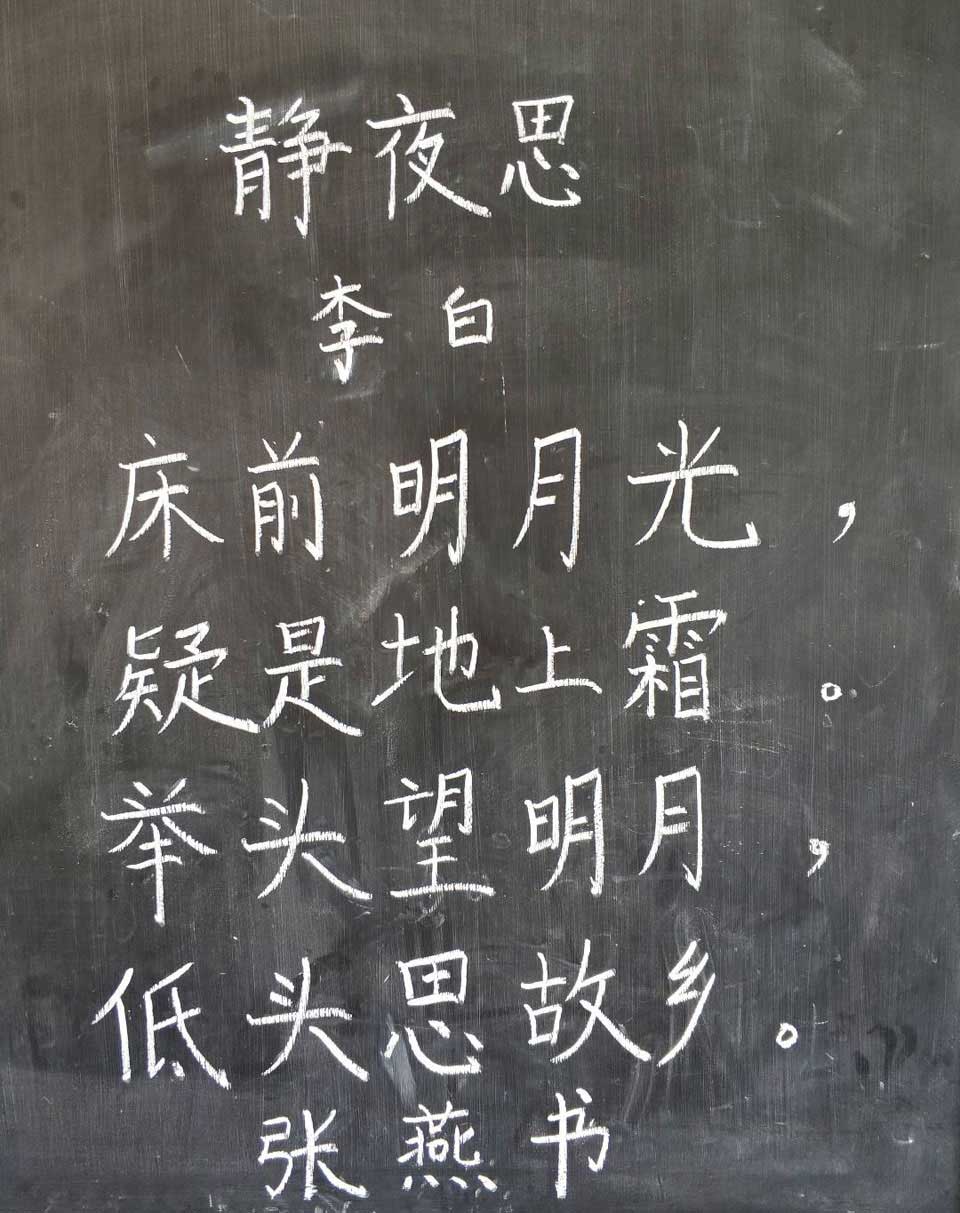 静夜思
李白
床前明月光，
疑是地上霜。
举头望明月，
低头思故乡。
张燕书